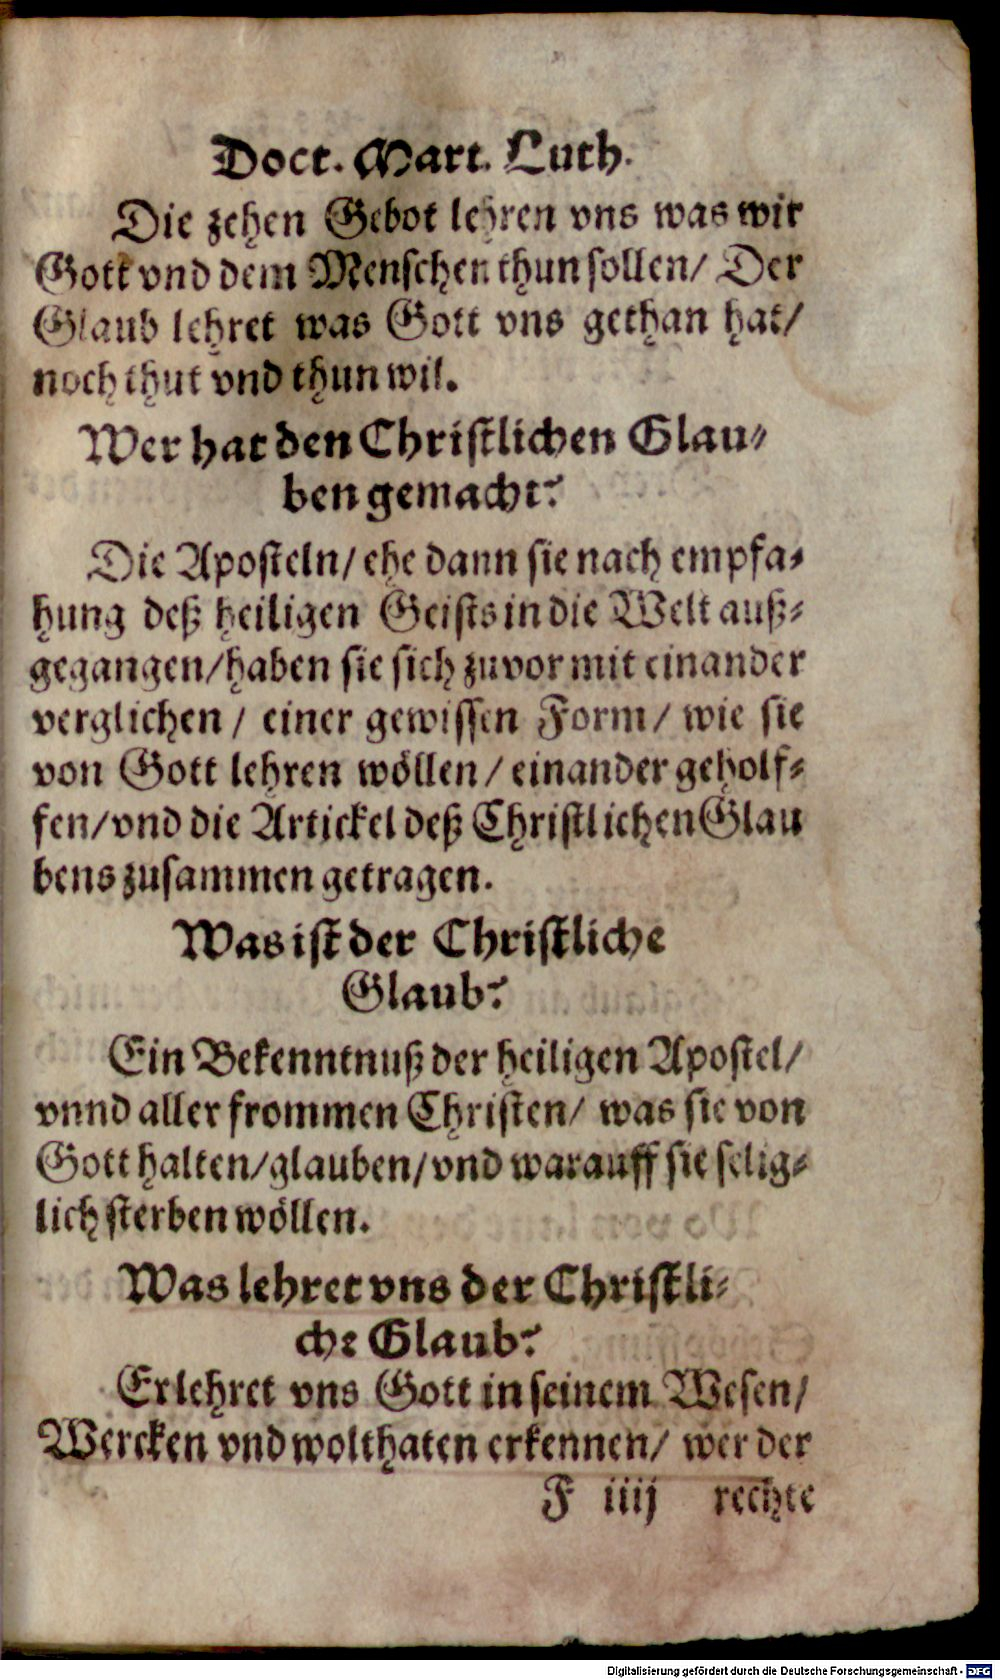 Doct. Mart. Luth.
Die zehen Gebot lehren vns was wir
Gott vnd dem Menschen thun sollen/ Der
Glaub lehret was Gott vns gethan hat/
noch thut vnd thun wil.
Wer hat den Christlichen Glau-
ben gemacht?
Die Aposteln/ ehe dann sie nach empfa-
hung deß heiligen Geists in die Welt auß-
gegangen/ haben sie sich zuvor mit einander
verglichen/ einer gewissen Form/ wie sie
von Gott lehren wöllen/ einander geholf-
fen/ vnd die Artickel deß Christlichen Glau
bens zusammen getragen.
Was ist der Christliche
Glaub?
Ein Bekenntnuß der heiligen Apostel/
vnnd aller frommen Christen/ was sie von
Gott halten/ glauben/ vnd warauff sie selig-
lich sterben wöllen.
Was lehret vns der Christli-
che Glaub?
Er lehret vns Gott in seinem Wesen/
Wercken vnd wolthaten erkennen/ wer der
F iiij rechte
Digitalisierung gefördert durch die Deutsche Forschungsgemeinschaft - DFG